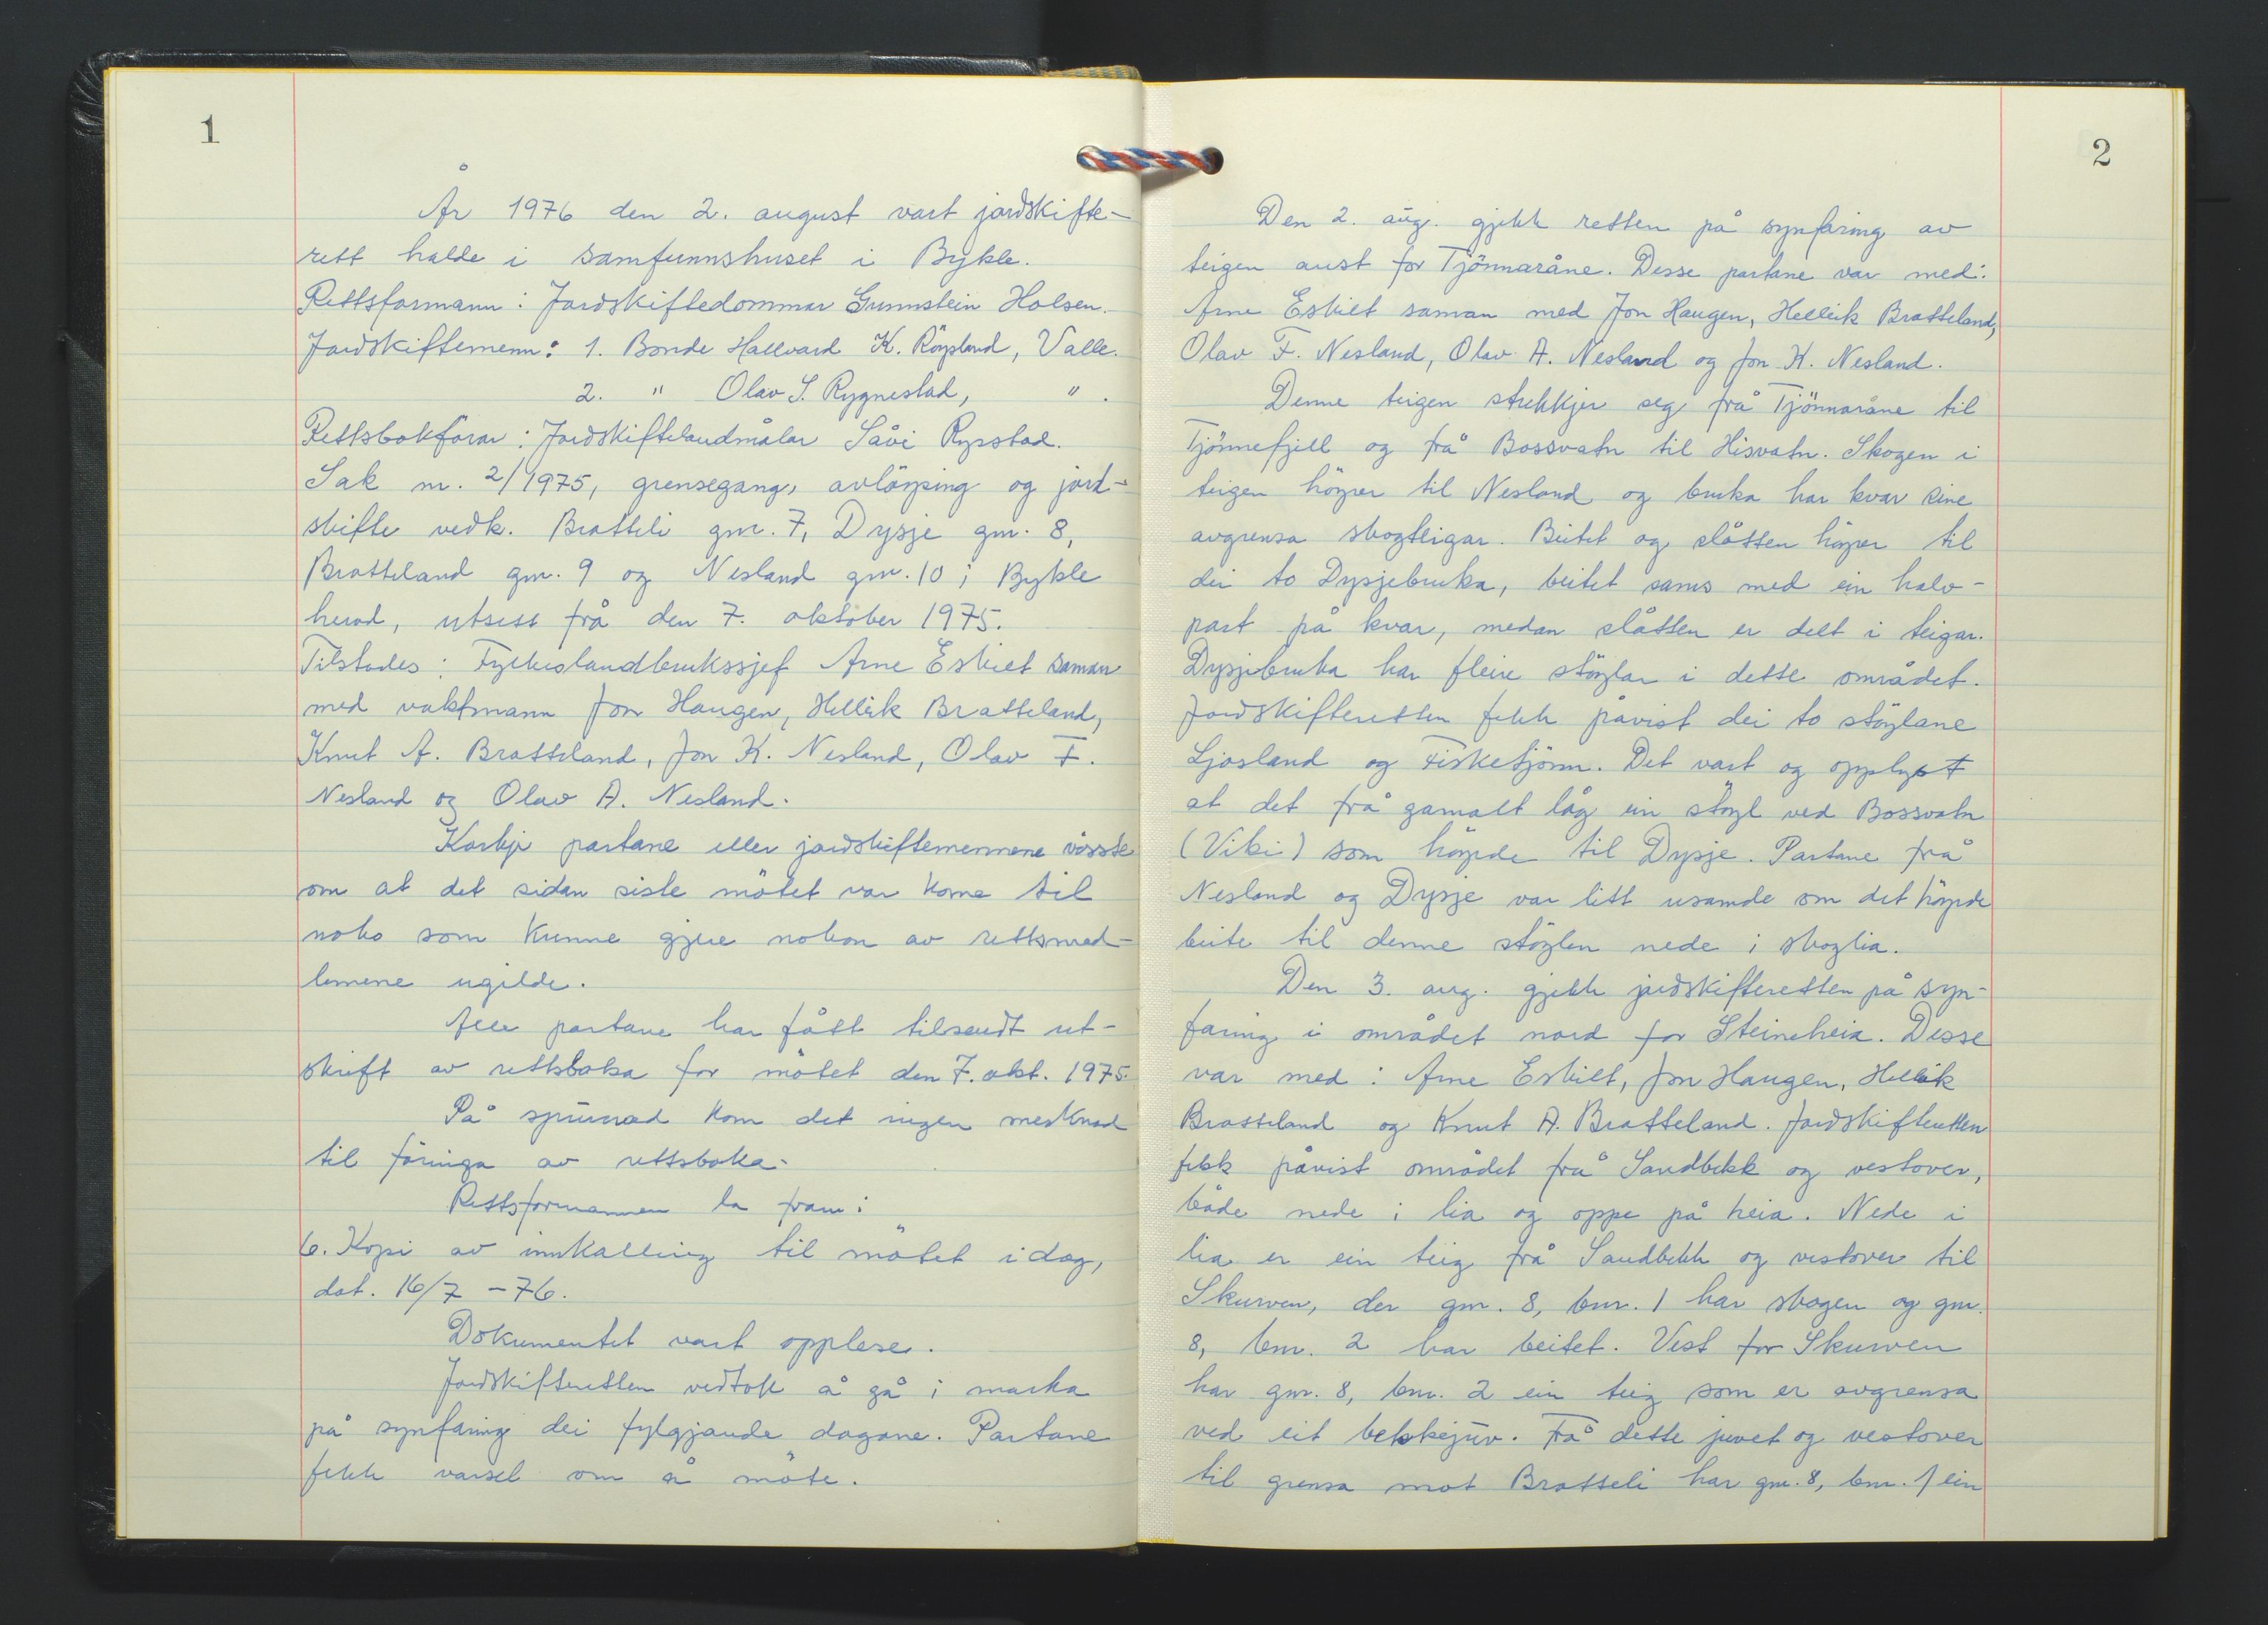 1
År 1976 den 2. august vart jordskifte-
rett halde i samfunnshuset i Bykle.
Rettsformann: Jordskiftedommar Gunnstein Holsen.
Jordskiftemenn: 1. Bonde Hallvard K. Röysland, Valle.
2. " Olav S. Rygnestad, " .
Rettsbokförar: Jordskiftelandmålar Såvi Rysstad.
Sak nr. 2/1975, grensegang, avlöysing og jord-
skifte vedk. Bratteli gnr. 7, Dysje gnr. 8,
Bratteland gnr. 9 og Nesland gnr. 10 i Bykle
herad, utsett frå den 7. oktober 1975.
Tilstades: Fylkeslandbrukssjef Arne Eskilt saman
med vaktmann Jon Haugen, Helleik Bratteland,
Knut A. Bratteland, Jon K. Nesland, Olav F.
Nesland og Olav A. Nesland.
Korkje partane eller jordskiftemennene visste
om at det sidan siste mötet var kome til
noko som kunne gjere nokon av rettsmed-
lemene ugilde.
Alle partane har fått tilsendt ut-
skrift av rettsboka for mötet den 7. okt. 1975.
På spurnad kom det ingen merknad
til föringa av rettsboka.
Rettsformannen la fram:
6. Kopi av innkalling til mötet i dag,
dat. 16/7 -76.
Dokumentet vart opplese.
Jordskifteretten vedtok å gå i marka
på synfaring dei fylgjande dagane. Partane
fekk varsel om å möte.
2
Den 2. aug. gjekk retten på synfaring av
teigen aust for Tjönnaråne. Desse partane var med:
Arne Eskilt saman med Jon Haugen, Helleik Bratteland,
Olav F. Nesland, Olav A. Nesland og Jon K. Nesland.
Denne teigen strekkjer seg frå Tjönnaråne til
Tjönnefjell og frå Bossvatn til Hisvatn. Skogen i
teigen höyrer til Nesland og bruka har kvar sine
avgrensa skogteigar. Beitet og slåtten höyrer til
dei to Dysjebruka, beitet sams med ein halv-
part på kvar, medan slåtten er delt i teigar.
Dysjebruka har fleire stöylar i dette området.
Jordskifteretten fekk påvist dei to stöylane
Ljosland og Fisketjönn. Det vart og opplyst
at det frå gamalt låg ein stöyl ved Bossvatn
(Viki) som höyrde til Dysje. Partane frå
Nesland og Dysje var litt usamde om det höyrde
beite til denne stöylen nede i skoglia.
Den 3. aug. gjekk jordskifteretten på syn-
faring i området nord for Steineheia. Desse
var med: Arne Eskilt, Jon Haugen, Helleik
Bratteland og Knut A. Bratteland. Jordskifteretten
fekk påvist området frå Sandbekk og vestover,
både nede i lia og oppe på heia. Nede i
lia er ein teig frå Sandbekk og vestover til
Skurven, der gnr. 8, bnr. 1 har skogen og gnr.
8, bnr. 2 har beitet. Vest for Skurven
har gnr. 8, bnr. 2 ein teig som er avgrensa
ved eit bekkejuv. Frå dette juvet og vestover
til grensa mot Bratteli har gnr. 8, bnr. 1 ein